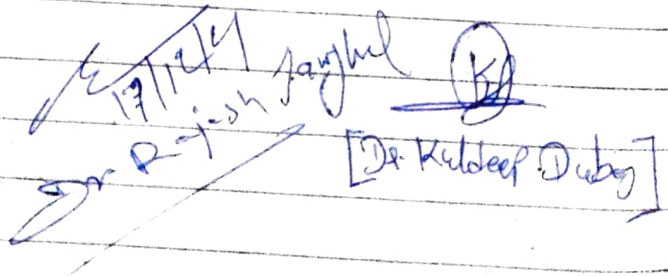 17/12/21
Dr. Rajesh Janghel
[Dr. Kuldeep Dubey]